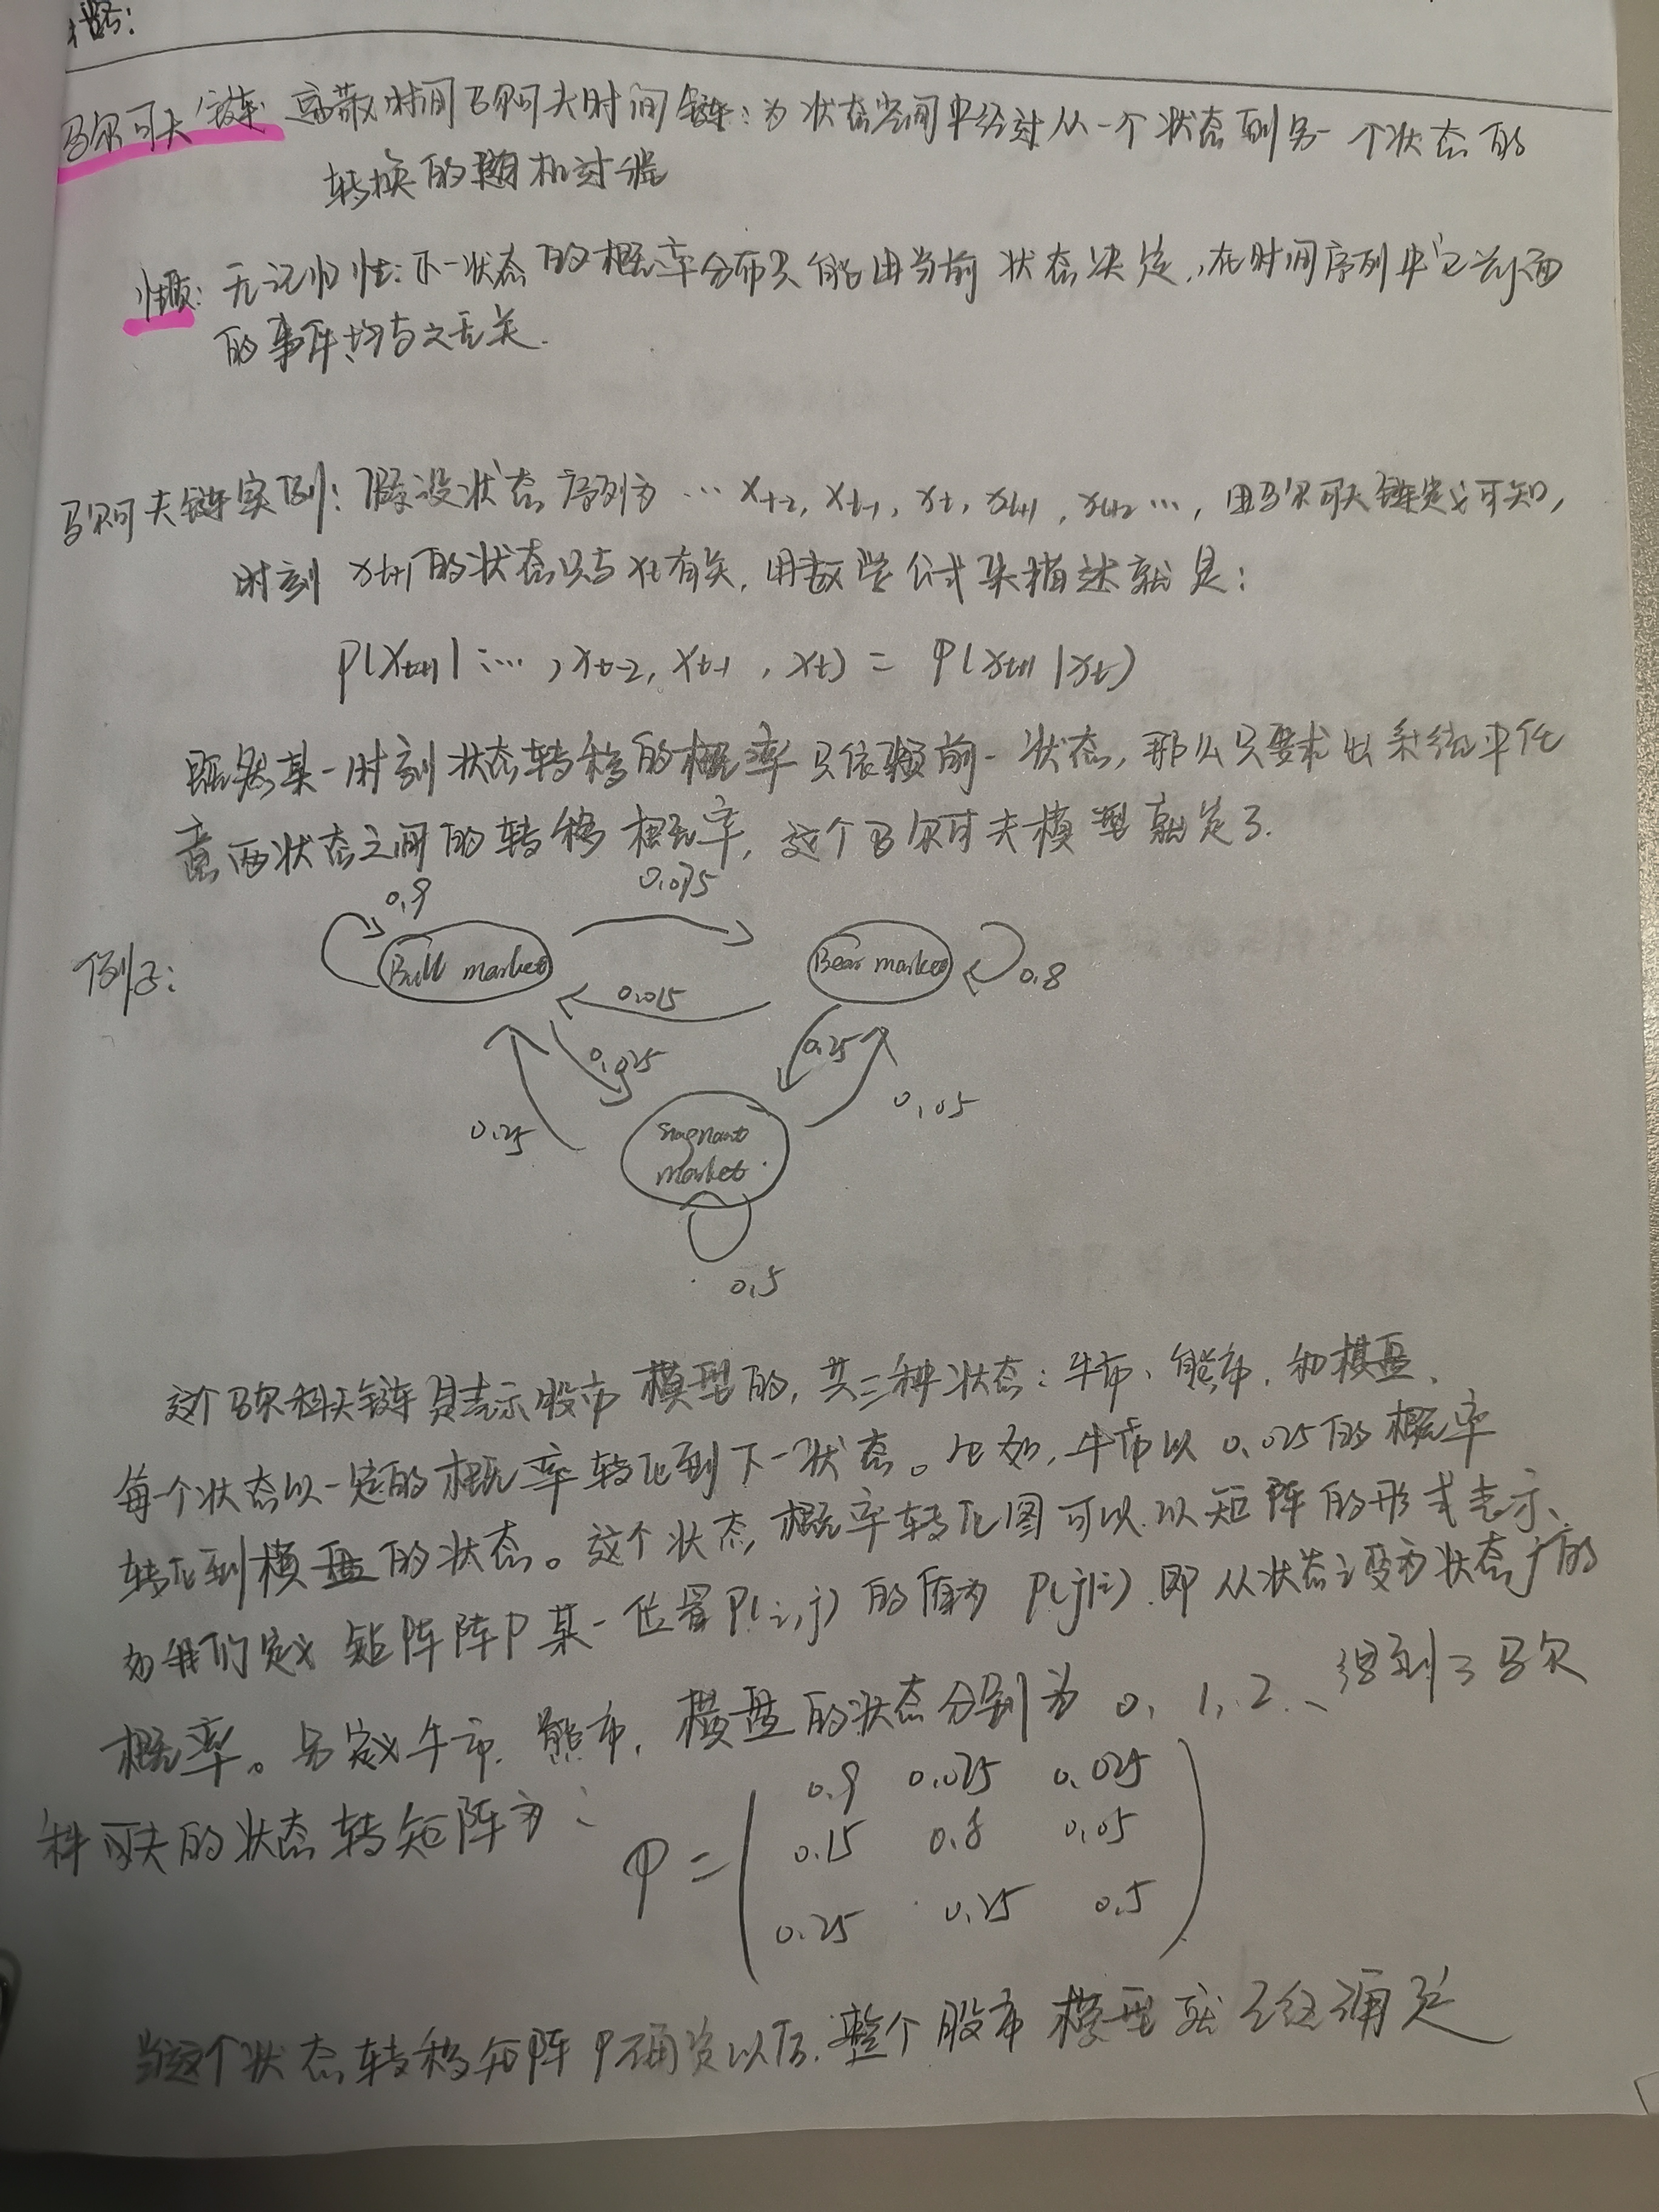 马尔可夫链 离散时间马尔可夫时间链：为状态空间中经过从一个状态到另一个状态的
转换的随机过程
性质：无记忆性：下一状态的概率分布只能由当前状态决定，在时间序列中它前面
的事件均与之无关.
马尔可夫链实例：假设状态序列为 … xt-2, xt-1, xt, xt+1, xt+2 …, 由马尔可夫链定义可知,
时刻 xt+1 的状态只与 xt 有关, 用数学公式来描述就是：
P(xt+1 | …, xt-2, xt-1, xt) = P(xt+1 | xt)
既然某一时刻状态转移的概率只依赖前一状态, 那么只要求出系统中任
意两状态之间的转移概率, 这个马尔可夫模型就定了.
0.9 0.075
例子： Bull market Bear market 0.8
0.015
0.025 0.25
0.25 0.05
market
0.5
这个马尔科夫链是表示股市模型的, 共三种状态：牛市、熊市, 和横盘.
每个状态以一定的概率转化到下一状态。比如, 牛市以 0.025 的概率
转化到横盘的状态。这个状态概率转化图可以以矩阵的形式表示、
为我们定义矩阵阵P某一位置P(i,j)的值为 P(j|i) 即从状态i变为状态j的
概率。另定义牛市、熊市, 横盘的状态分别为 0, 1, 2、得到了马尔
科可夫的状态转矩阵为：
0.9 0.025 0.025
P = 0.15 0.8 0.05
0.25 0.25 0.5
当这个状态转移矩阵P确定以后, 整个股市模型就已经确定